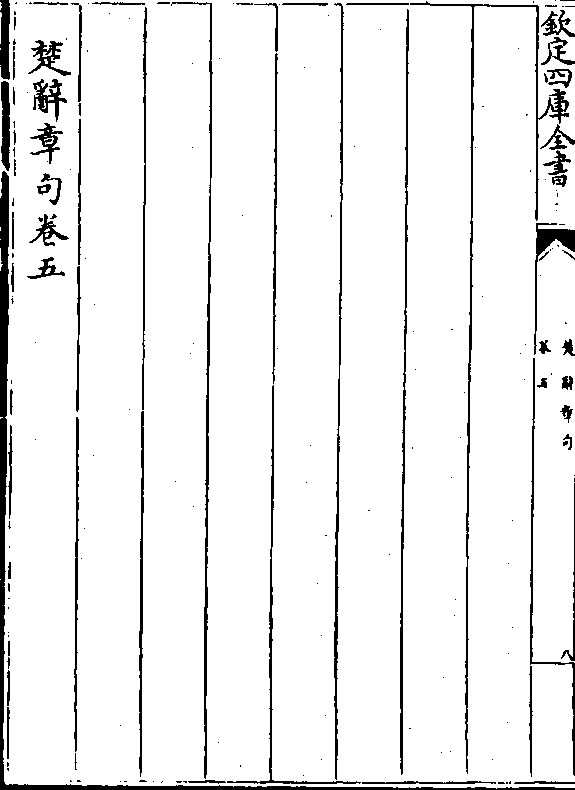 欽定四庫全書
楚辭章句
卷五
八
楚辭章句卷五